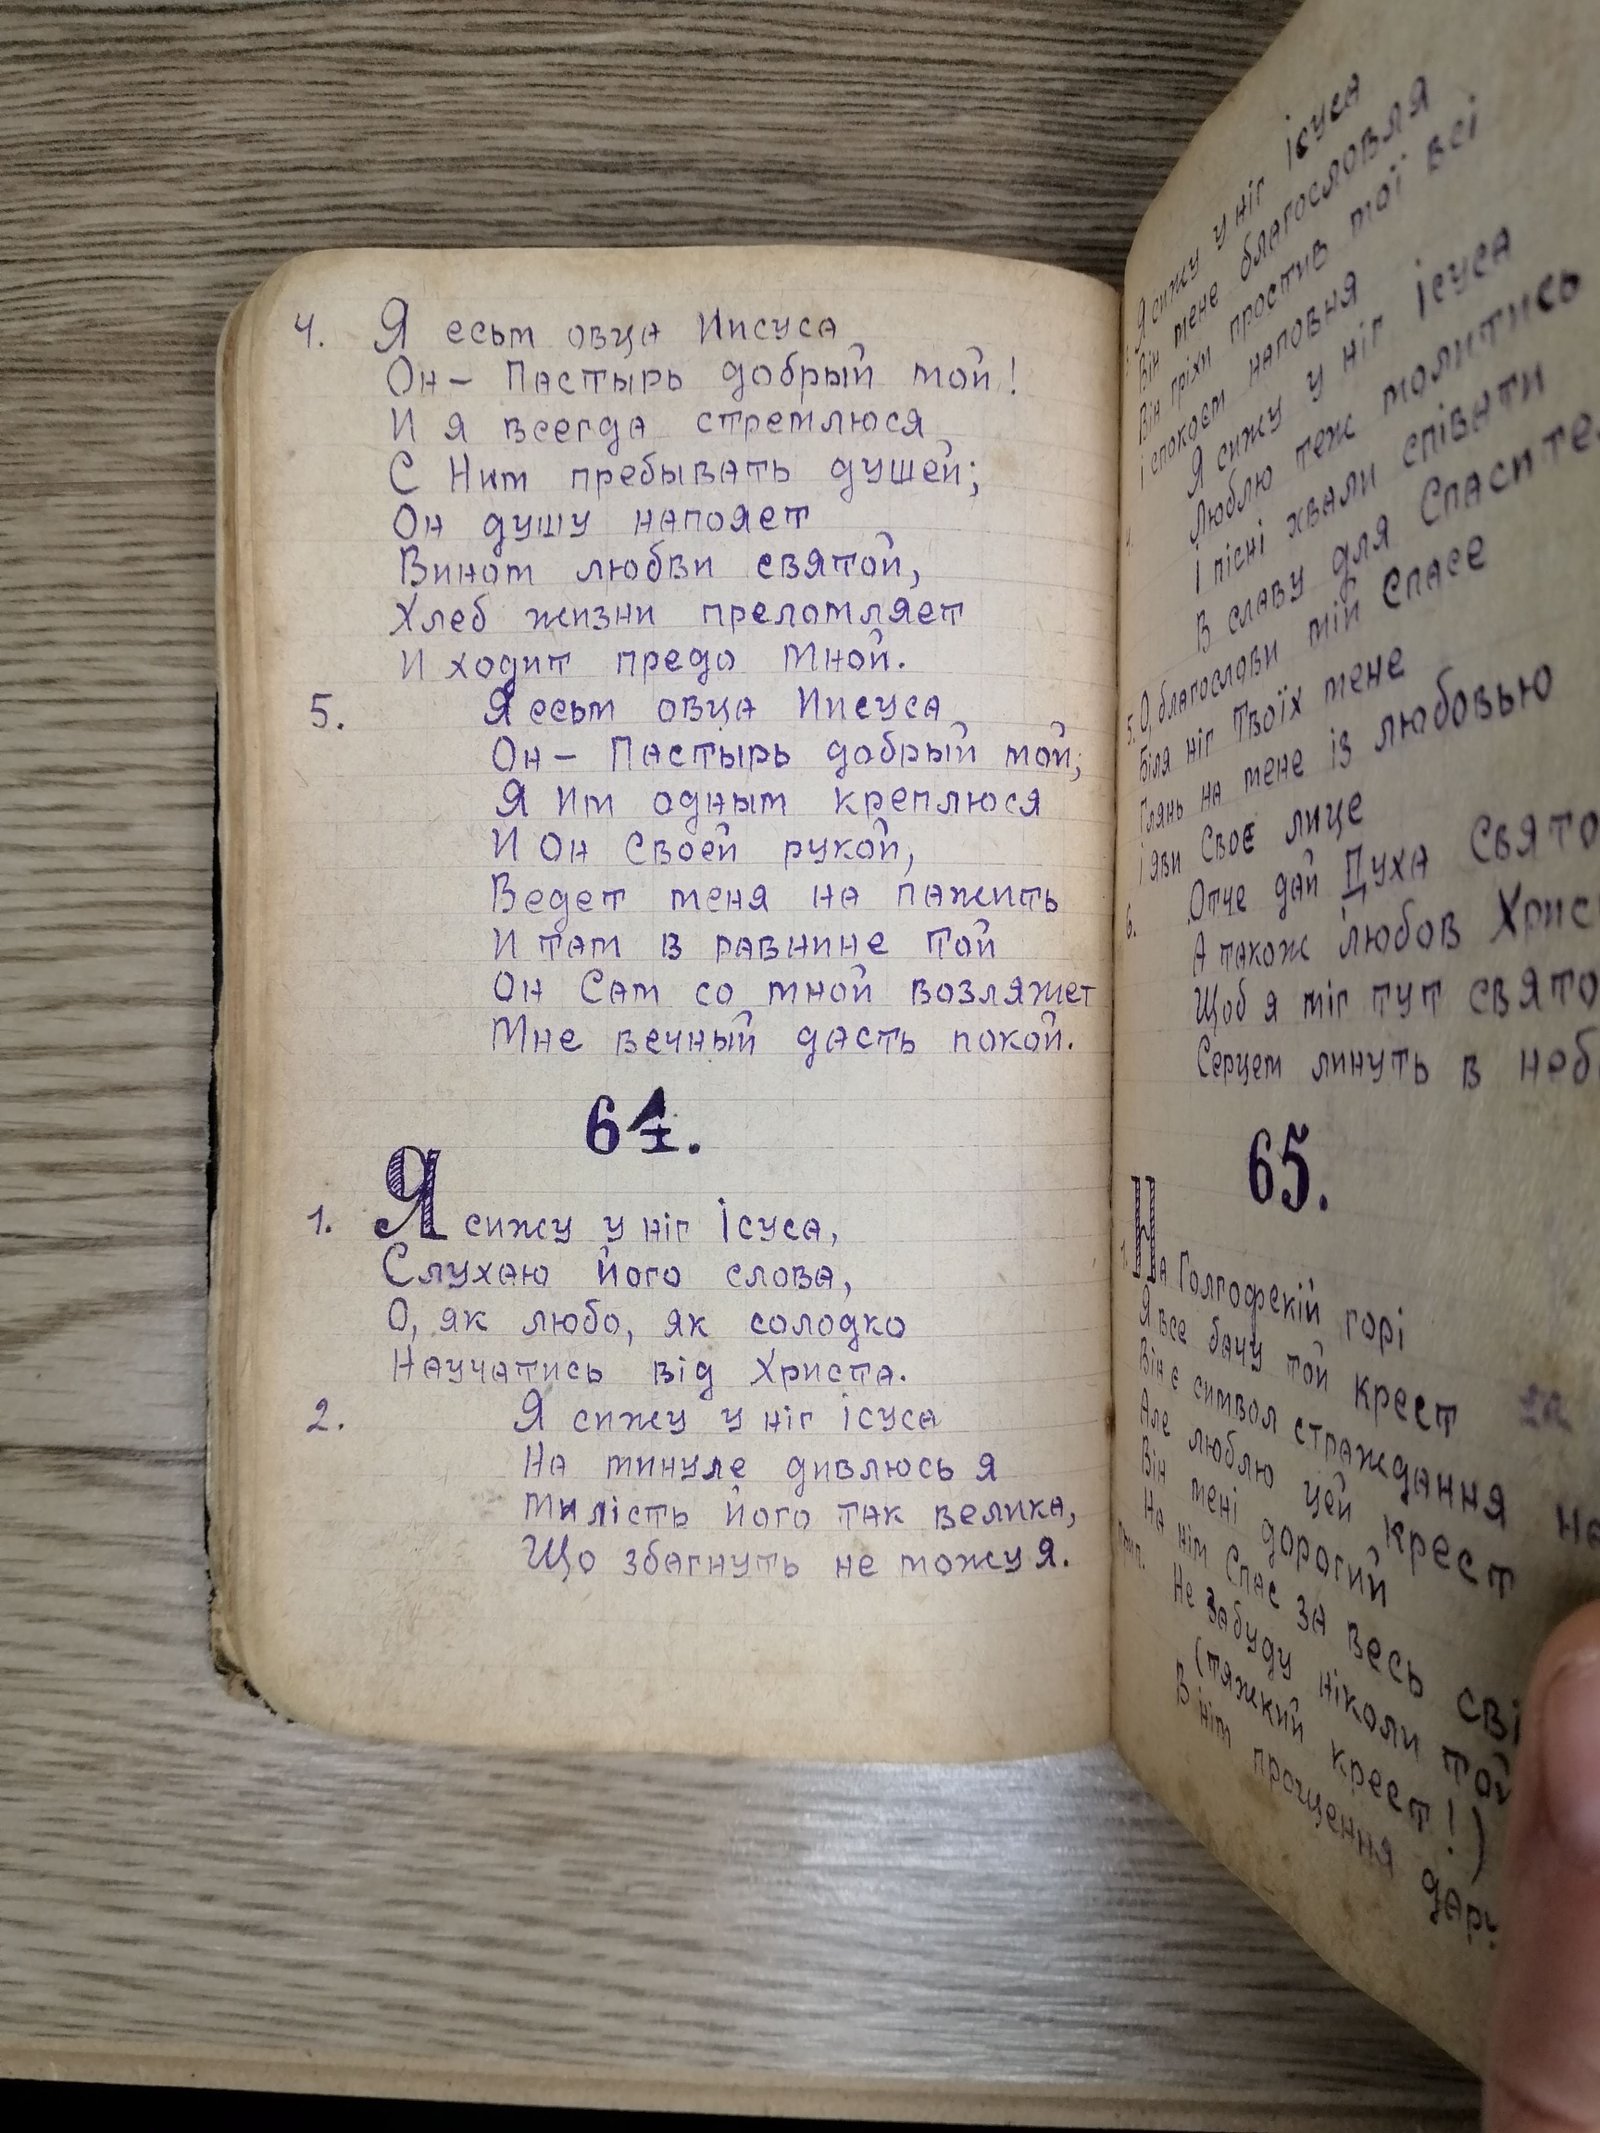 4. Я есьм овца Иисуса
Он – Пастырь добрый мой!
И я всегда стремлюся
С Ним пребывать душей;
Он душу напояет
Вином любви святой,
Хлеб жизни преломляет
И ходит предо Мной.
5. Я есьм овца Иисуса
Он – Пастырь добрый мой;
Я Им одным креплюся
И Он Своей рукой,
Ведет меня на пажить
И там в равнине той
Он Сам со мной возляжет
Мне вечный дасть покой.
64.
1. Я сижу у ніг Ісуса,
Слухаю його слова,
О, як любо, як солодко
Научатись від Христа.
2. Я сижу у ніг ісуса
На минуле дивлюсь я
Милість його так велика,
Що збагнуть не можу я.
Я сижу у ніг ісуса
Він мене благословля
Він гріхи простив мої всі
І спокоєм наповня
Я сижу у ніг ісуса
Люблю теж молитись
І пісні хвали співати
В славу для
5. О, благослови мій Спасе
Біля ніг Твоїх мене
Глянь на мене із любовью
І яви Своє лице
6. Отче дай Духа
А також любов
Щоб я міг тут
Серцем линуть в
65.
1. На Голгофскій горі
Я все бачу той крест
Він є символ страждання
Але люблю цей крест
Він мені дорогий
На нім Спас за весь
Не забуду ніколи той
(тяжкий крест!)
В нім прощення